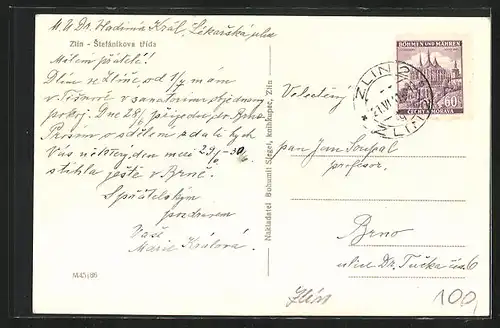 M. U. Dr. Vladimír Král, Lékařská ulice
Zlín - Štefánikova třída
Milém přátelé!
Dlím ve Zlíně, od 1/7 mám
v sanatoriu objednaný
pokoj. Dne 28/6 přijedu do Brna
Prosím o sdělení, zda bych
Vás některý den mezi 29/6-30/6
stihla ještě v Brně.
S přátelským
pozdravem
Vaše
Marie Králová.
M 45/86
Nakladatel Bohumil Siegel, knihkupec, Zlín
BÖHMEN UND MÄHREN
60
ČECHY A MORAVA
ZLÍN
ZLIN
Velectěný
pan Jan Soukal
profesor.
Brno
ulice Dr. Tučka čís. 6
Zlín
100